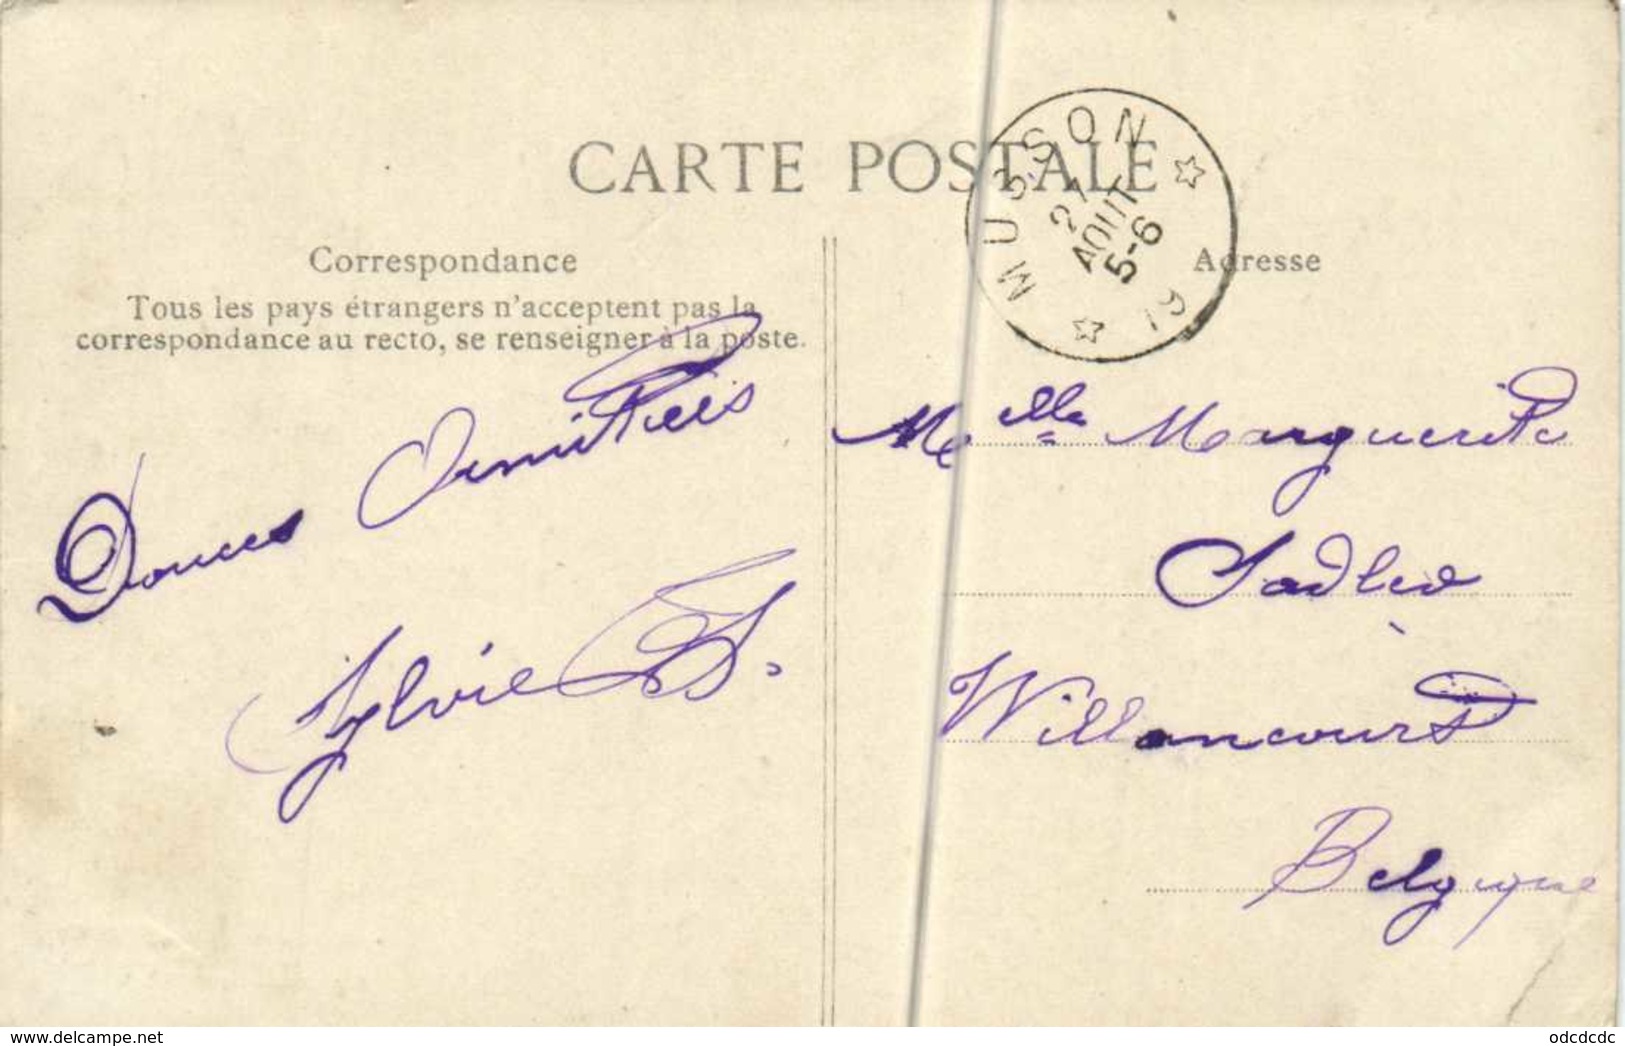 CARTE POSTALE
MUSSON
27
AOUT
5-6
Correspondance
Adresse
Tous les pays étrangers n'acceptent pas la
correspondance au recto, se renseigner à la poste.
Douces Amitiéis
Sylvie
Melle Marguerite
Willancourt
Belgique
Delcampe.net
odcdcdc